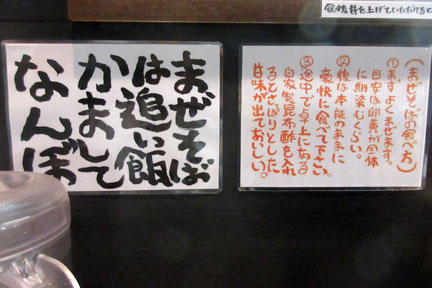 食後丼を上げていただけると
まぜそば
は追い飯
かまして
なんぼ
(まぜそばの食べ方)
①まずよくまぜます。
目安は卵黄が全体
に馴染むくらい。
②後は本能のままに
豪快に食べて下さい。
③途中で卓上にある
自家製昆布酢を入れ
るとさっぱりとした
甘味が出ておいしい。